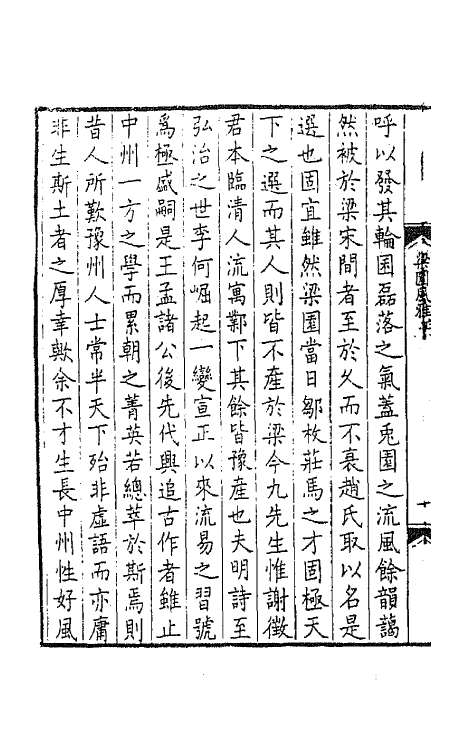 呼以發其輪囷磊落之氣蓋兎園之流風餘韻藹
然被於梁宋間者至於久而不衰趙氏取以名是
選也固宜雖然梁園當日鄒枚莊馬之才固極天
下之選而其人則皆不產於梁今九先生惟謝徵
君本臨清人流寓鄴下其餘皆豫產也夫明詩至
弘治之世李何崛起一變宣正以來流易之習號
爲極盛嗣是王孟諸公後先代興追古作者雖止
中州一方之學而累朝之菁英若總萃於斯焉則
昔人所歎豫州人士常半天下殆非虛語而亦庸
非生斯土者之厚幸歟余不才生長中州性好風
梁園風雅